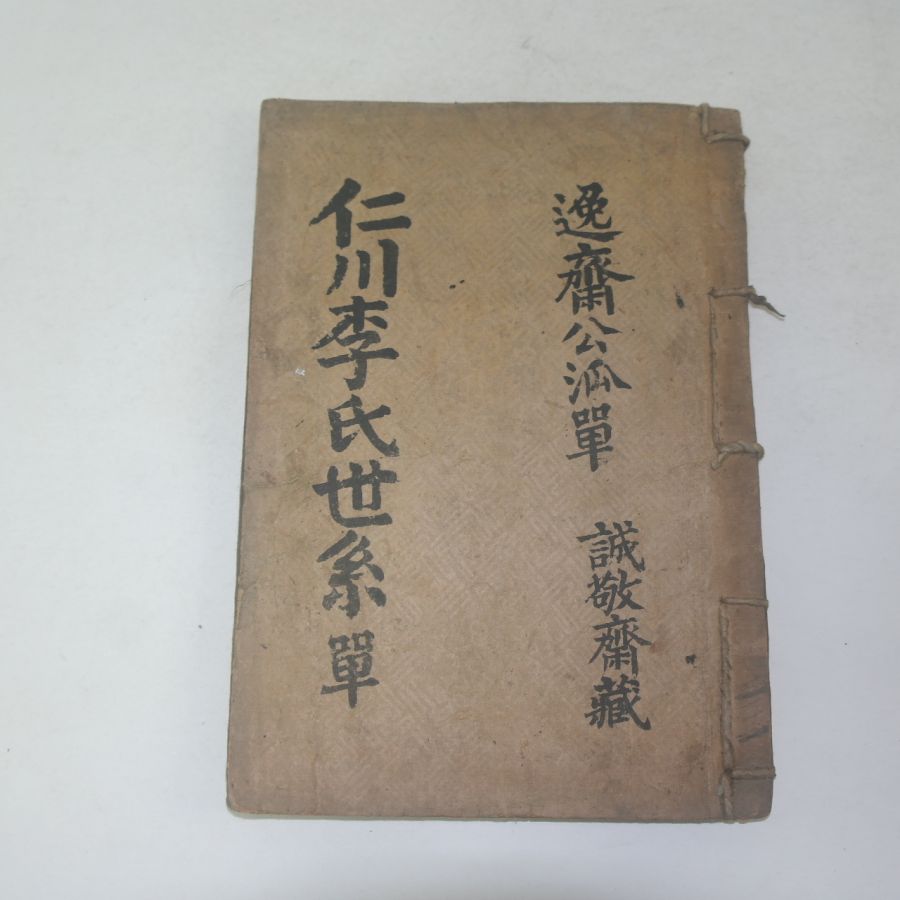 逸齋公派單
誠敬齋藏
仁川李氏世系單